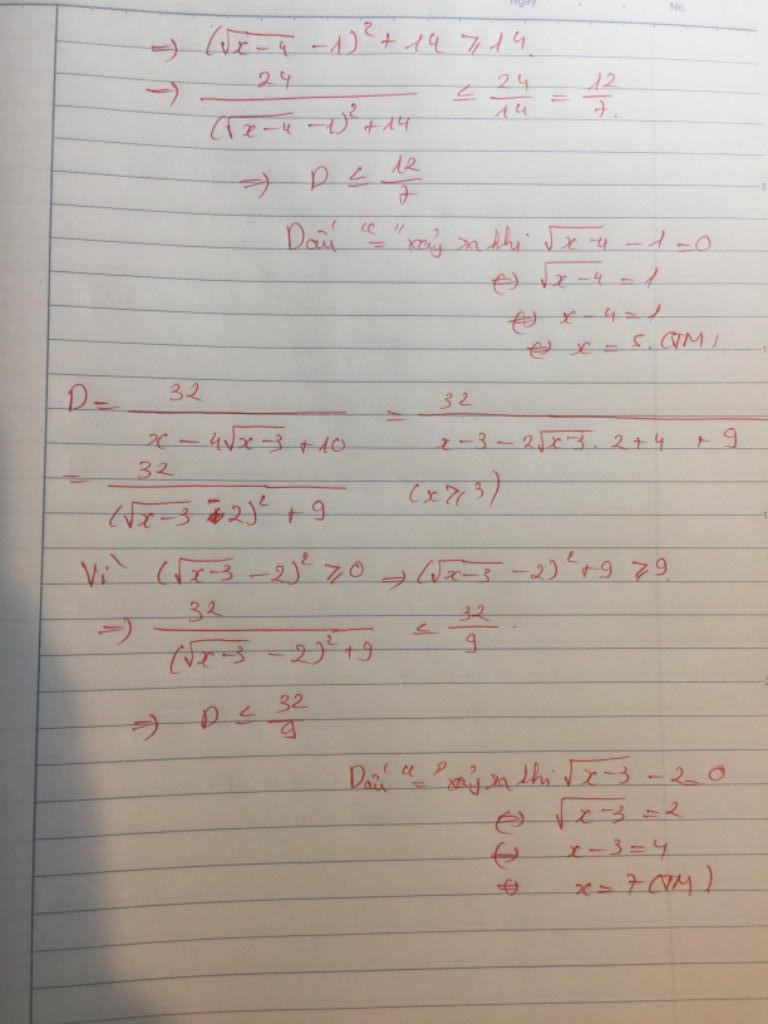 Ngày No.
=> (√x-4 -1)² + 14 ≥ 14.
=> 24/((√x-4 -1)² + 14) ≤ 24/14 = 12/7.
=> D ≤ 12/7
Dấu "=" xảy ra khi √x-4 - 1 = 0
<=> √x-4 = 1
<=> x - 4 = 1
<=> x = 5. (TM)
D = 32/(x - 4√x-3 + 10) = 32/(x-3 - 2√x-3 . 2 + 4 + 9)
= 32/((√x-3 - 2)² + 9) (x ≥ 3)
Vì (√x-3 - 2)² ≥ 0 => (√x-3 - 2)² + 9 ≥ 9.
=> 32/((√x-3 - 2)² + 9) ≤ 32/9.
=> D ≤ 32/9
Dấu "=" xảy ra khi √x-3 - 2 = 0
<=> √x-3 = 2
<=> x - 3 = 4
<=> x = 7 (TM)